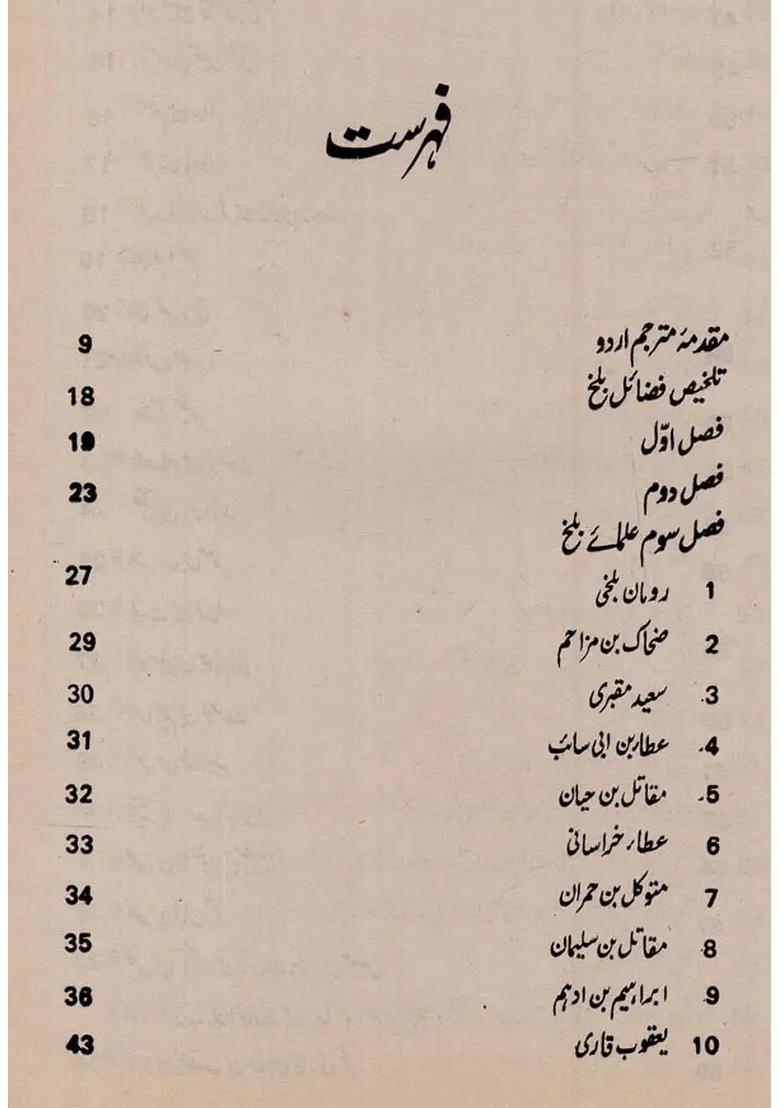 فہرست
مقدمۂ مترجم اردو 9
تلخیص فضائل بلخ 18
فصل اوّل 19
فصل دوم 23
فصل سوم علمائے بلخ
1 رومان بلخی 27
2 ضحاک بن مزاحم 29
3. سعید مقبری 30
4. عطار بن ابی سائب 31
5. مقاتل بن حیان 32
6 عطاء خراسانی 33
7 متوکل بن حمران 34
8 مقاتل بن سلیمان 35
9. ابراہیم بن ادہم 36
10 یعقوب قاری 43